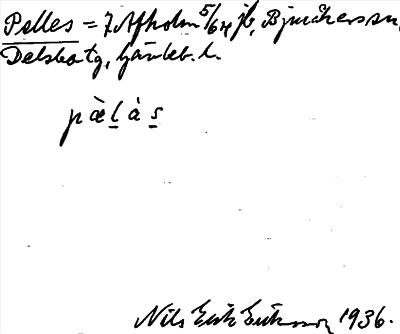 Pelles = 7 Afholm 5/64 jb, Bjuråkers sn,
Delsbo tg, Gävleb. l.
pæ̀lás
Nils Erik Eriksson 1936.